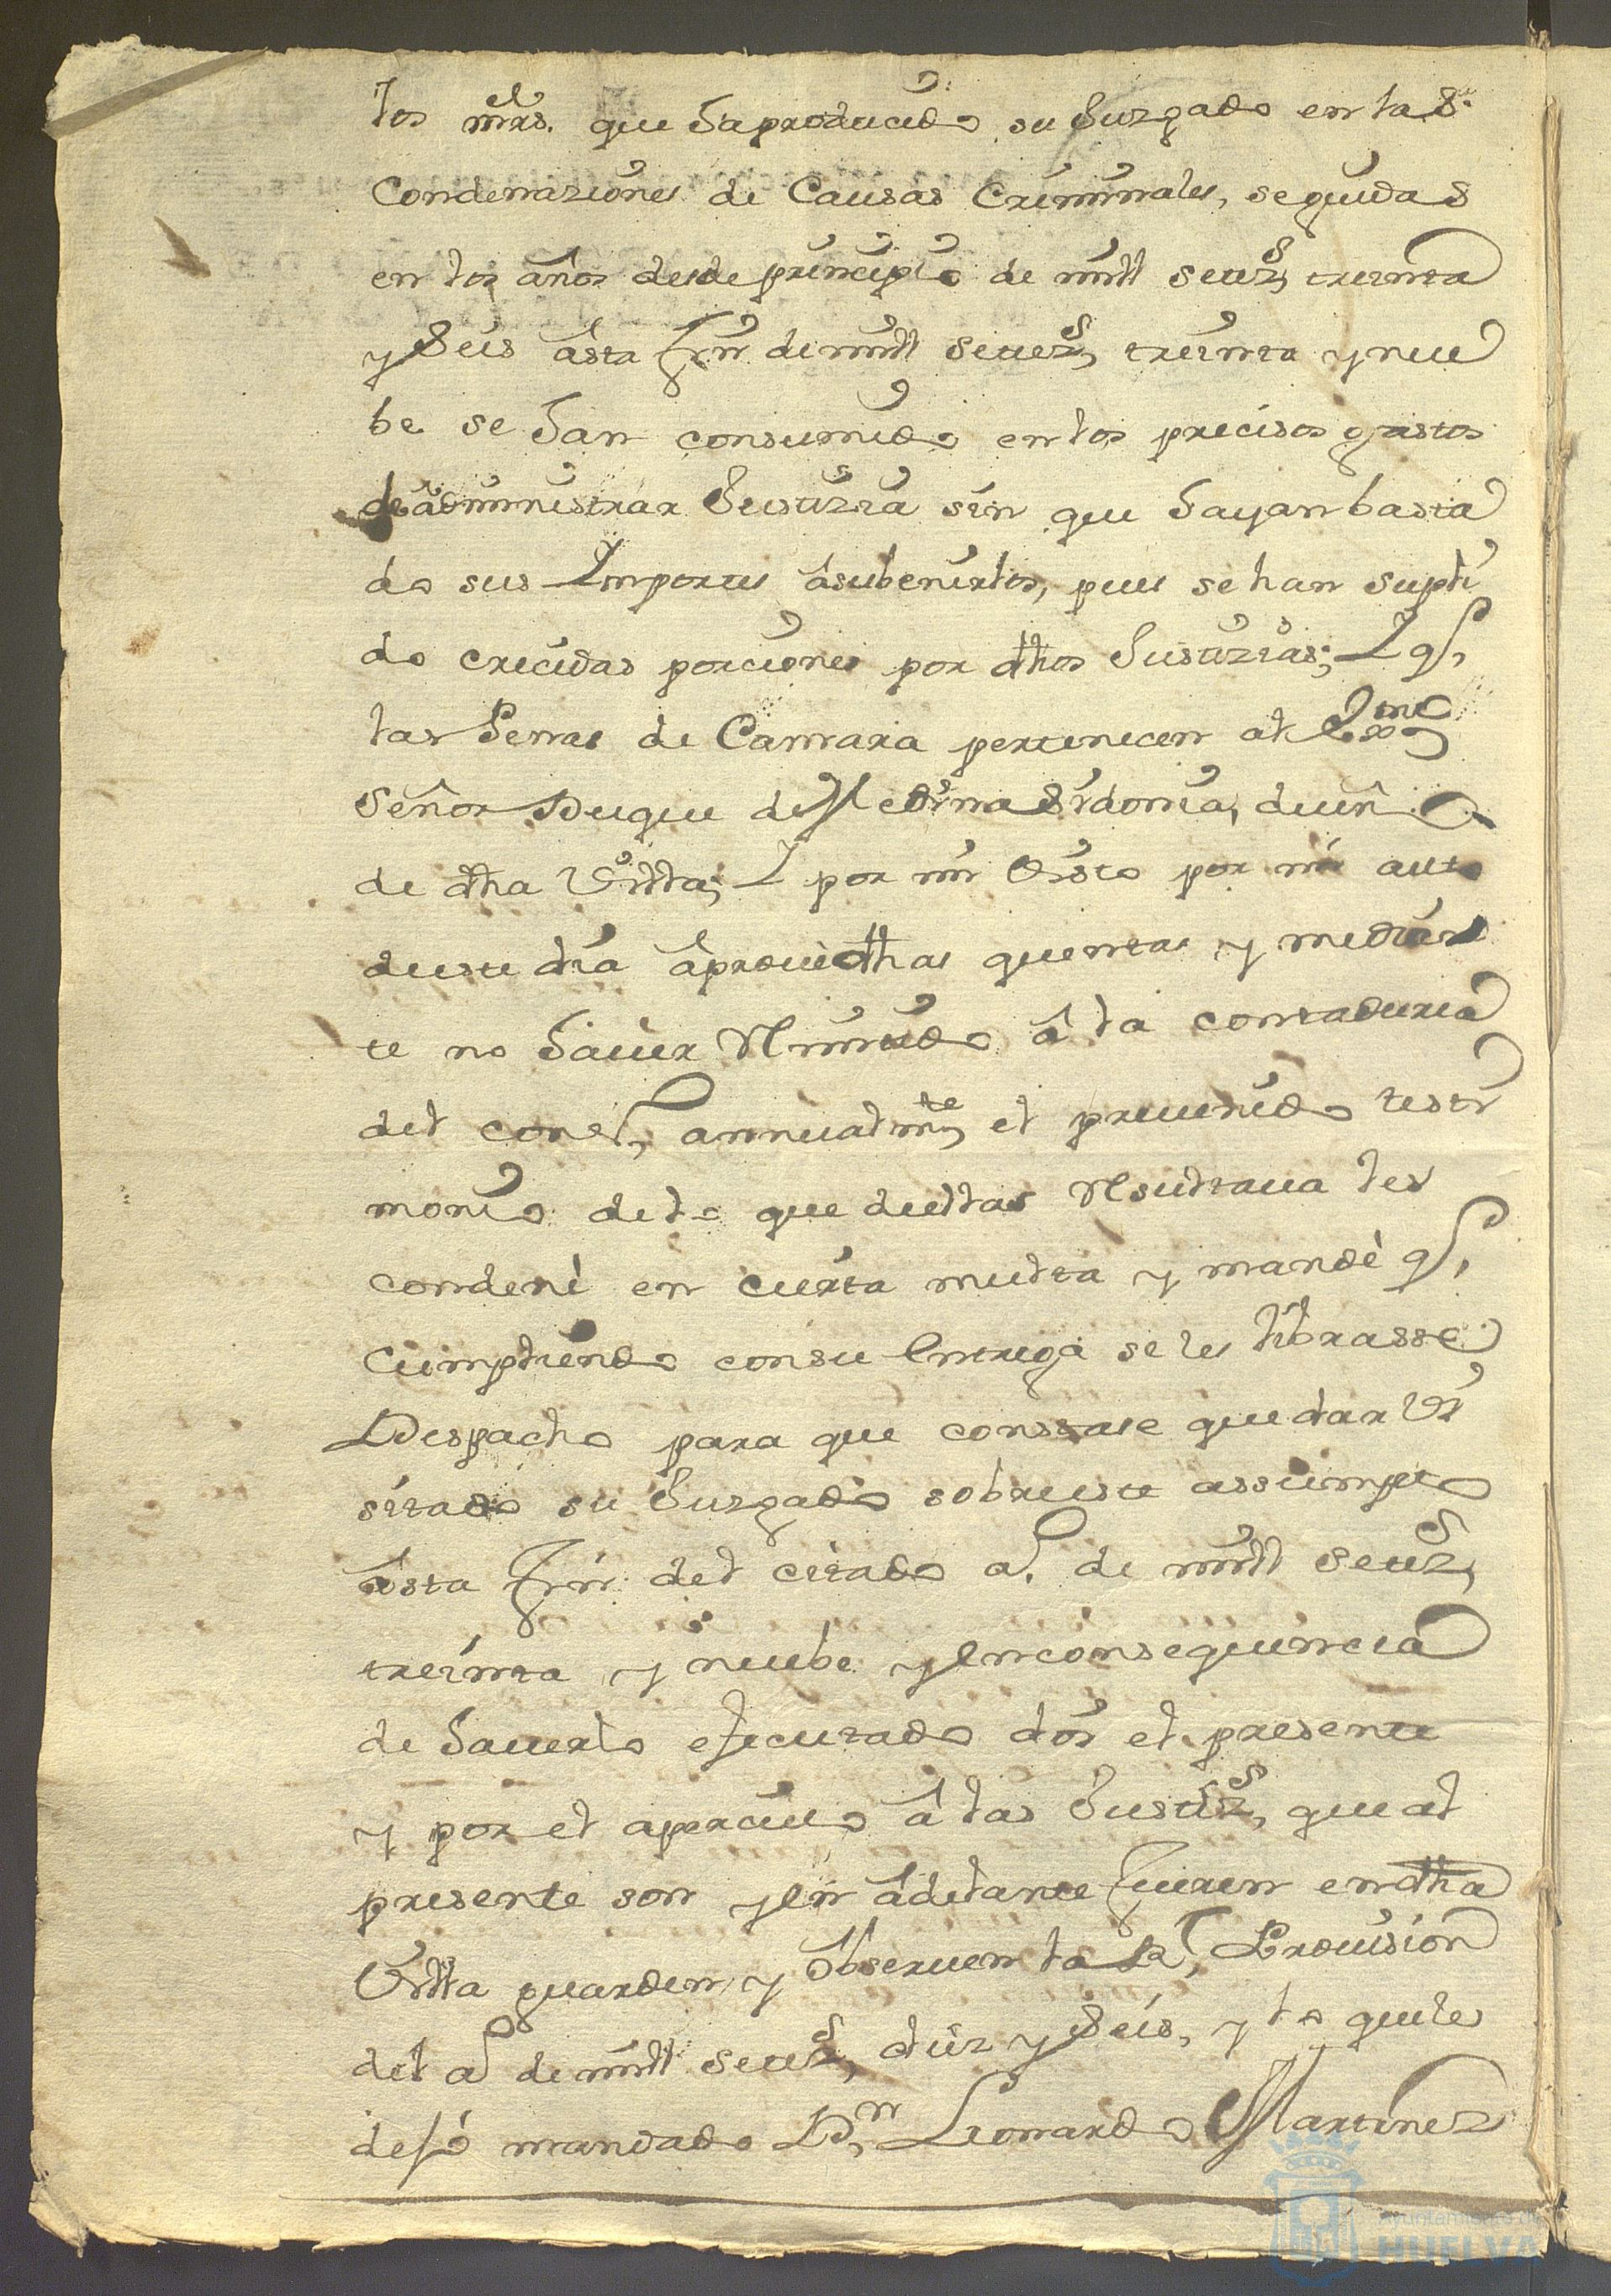 los mrs. que ha producido su Juzgado en las
Condenaziones de Causas Criminales, seguidas
en los años desde principio de mill setezs treinta
y Seis asta fin de mill Setezs treinta y nue
be se han consumido en los precisos gastos
de administrar Justizia sin que hayan basta
do sus Importes a subenirlos, pues se han supli
do crecidas porciones por dhos Justizias; Y q
las Penas de Camara pertenecen al Exmo
Señor Duque de Medina Sidonia, dueño
de dha Villa; Y por mi Visto por mi auto
deeste dia aprové dhas quentas y median
te no haver Remitido a la contaduria
del consº, annualmte el prevenido testi
monio de lo que deellas Resultava les
condené en cierta multa y mandé q
cumpliendo con su Entrega se les librasse
Despacho para que constase quedar Vi
sitado su Juzgado sobre este assumpto
asta fin del citado aº. de mill Setezs
treinta y nuebe y En consequencia
de haverlo efecutado doi el presente
y por el apercivo a las Justizs que al
presente son y En adelante fueren en dha
Villa guarden y observen la Rl Provision
del aº de mill Setezs diez y Seis, y lo que les
dejó mandado Dn Leonardo Martinez
Ayuntamiento de
HUELVA